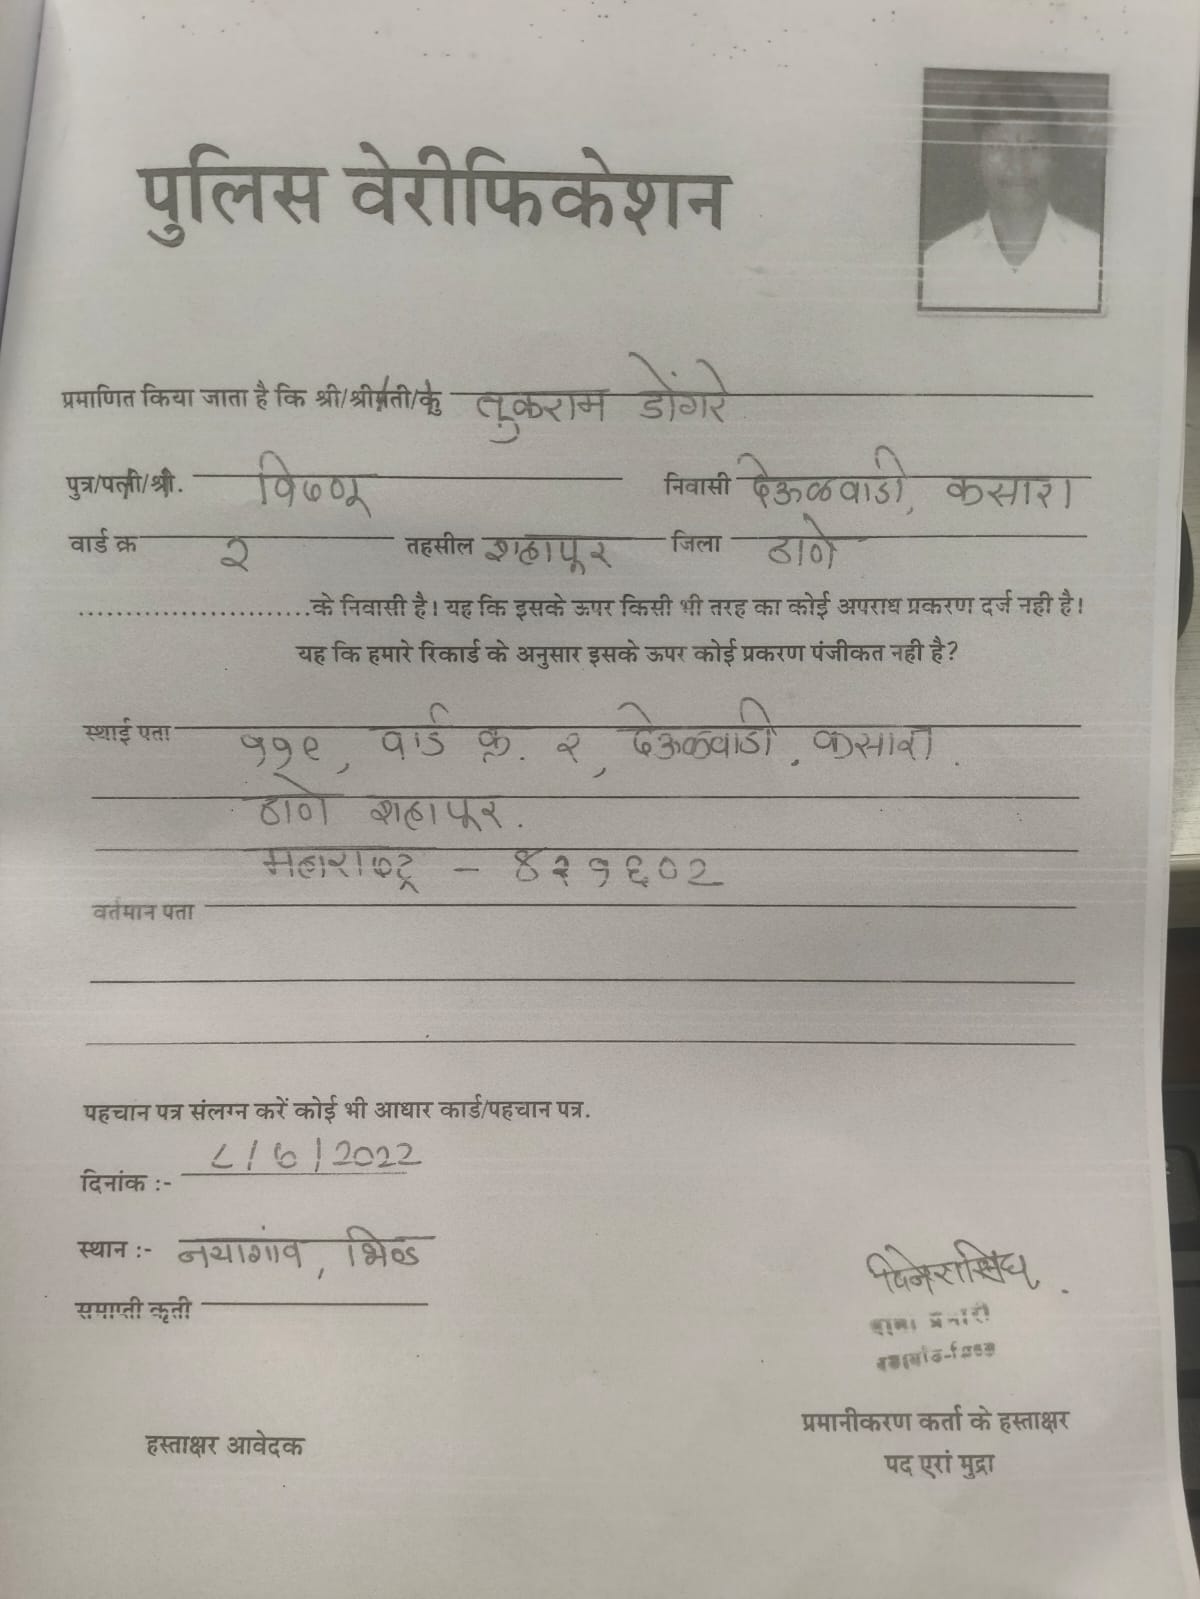 पुलिस वेरीफिकेशन
प्रमाणित किया जाता है कि श्री/श्रीमती/कु तुकाराम डोंगरे
पुत्र/पत्नी/श्री. विष्णू निवासी देऊळवाडी, कसारा
वार्ड क्र २ तहसील शहापूर जिला ठाणे
........................के निवासी है। यह कि इसके ऊपर किसी भी तरह का कोई अपराध प्रकरण दर्ज नही है।
यह कि हमारे रिकार्ड के अनुसार इसके ऊपर कोई प्रकरण पंजीकत नही है?
स्थाई पता ११९, वार्ड क्र. २, देऊळवाडी, कसारा.
ठाणे शहापूर.
महाराष्ट्र - ४२१६०२
वर्तमान पता
पहचान पत्र संलग्न करें कोई भी आधार कार्ड/पहचान पत्र.
दिनांक :- ८/७/2022
स्थान :- नयागांव, भिण्ड
समाप्ती कृती
थाना प्रभारी
हस्ताक्षर आवेदक
प्रमानीकरण कर्ता के हस्ताक्षर
पद एरां मुद्रा